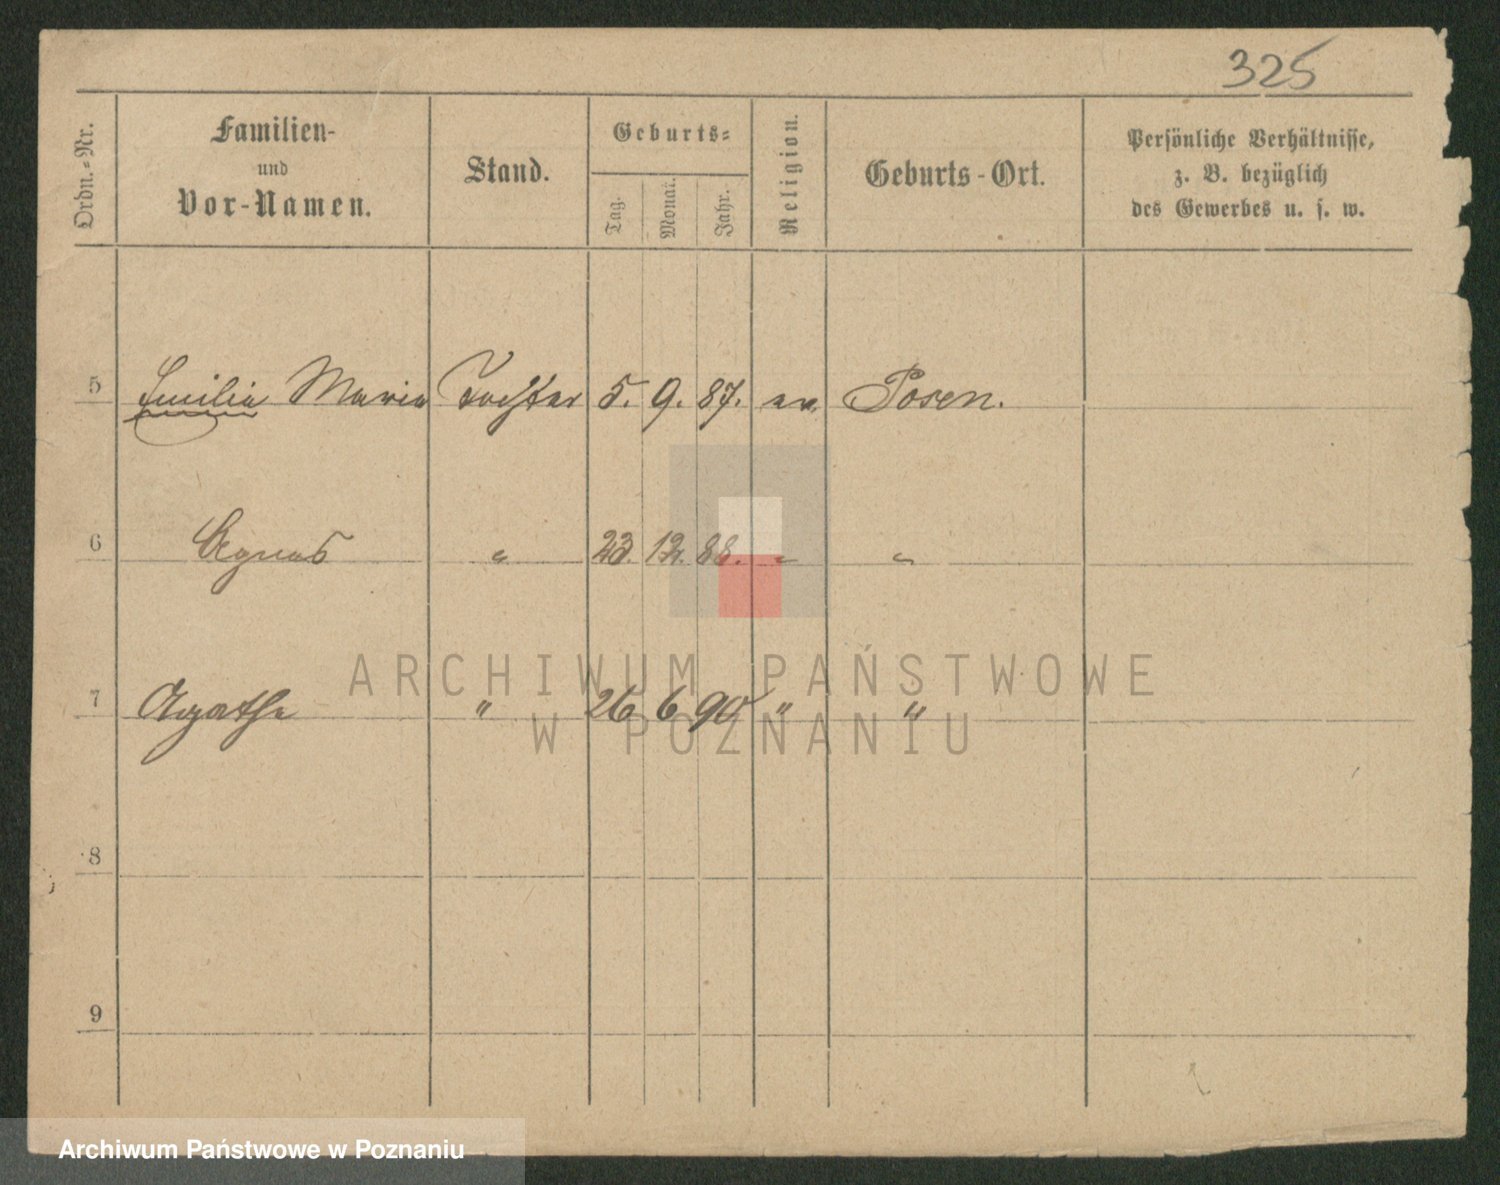 325
Ordn.-Nr.
Familien-
und
Vor-Namen.
Stand.
Geburts-
Tag.
Monat.
Jahr.
Religion.
Geburts-Ort.
Persönliche Verhältnisse,
z. B. bezüglich
des Gewerbes u. s. w.
5 Emilie Maria Tochter 5. 9. 87. ev. Posen.
6 Agnes " 23. 12. 88. " "
7 Agathe " 26 6 90 " "
8
9
ARCHIWUM PAŃSTWOWE
W POZNANIU
Archiwum Państwowe w Poznaniu